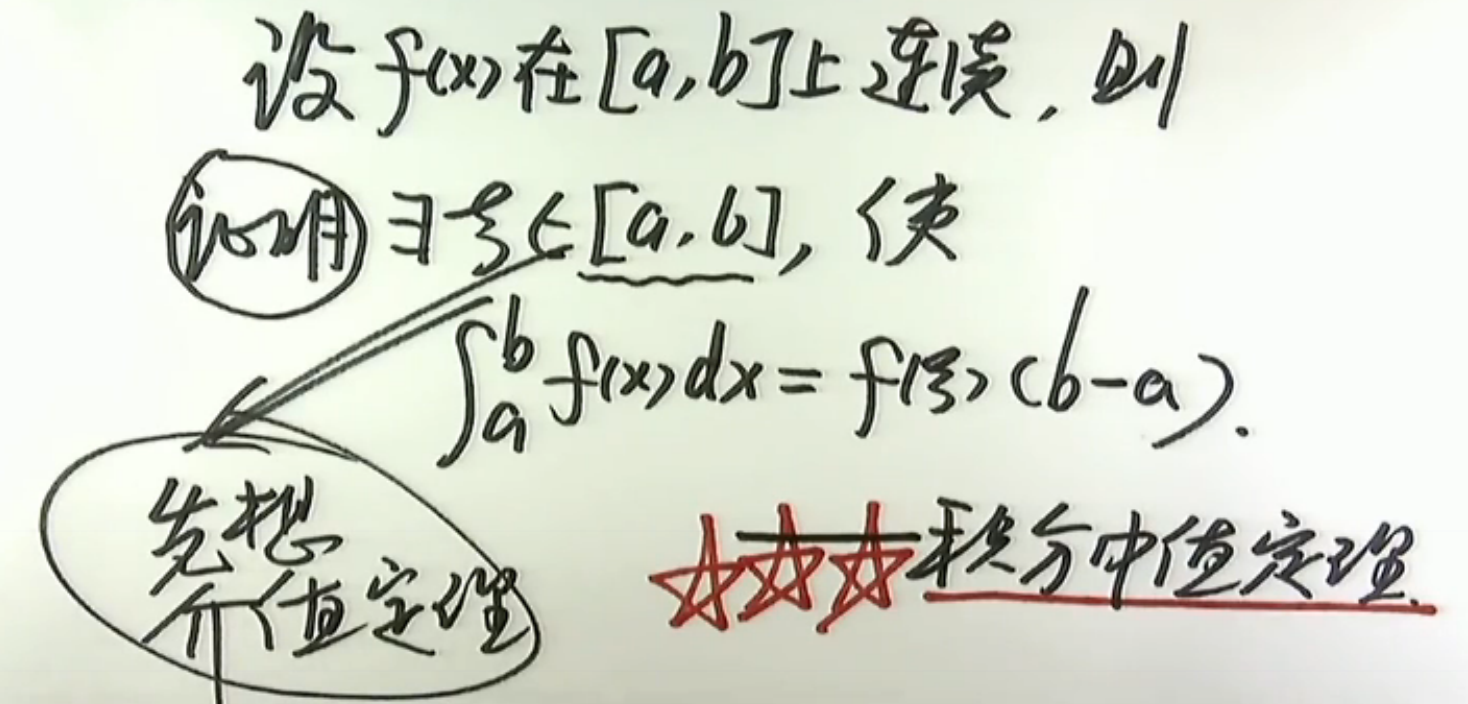 设f(x)在[a,b]上连续,则
证明∃ξ∈[a,b],使
∫_a^b f(x)dx=f(ξ)(b-a).
先想
介值定理
积分中值定理